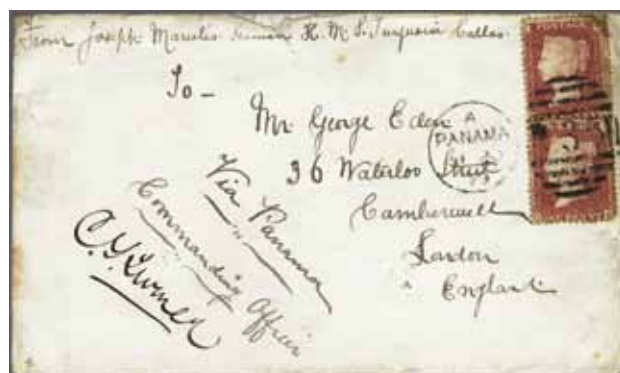 From Joseph seaman H.M.S. Turquoise Callao
To -
Mr George Eden
36 Waterloo Street
Camberwell
London
England
Via Panama
Commanding Officer
C. Turner
A
PANAMA